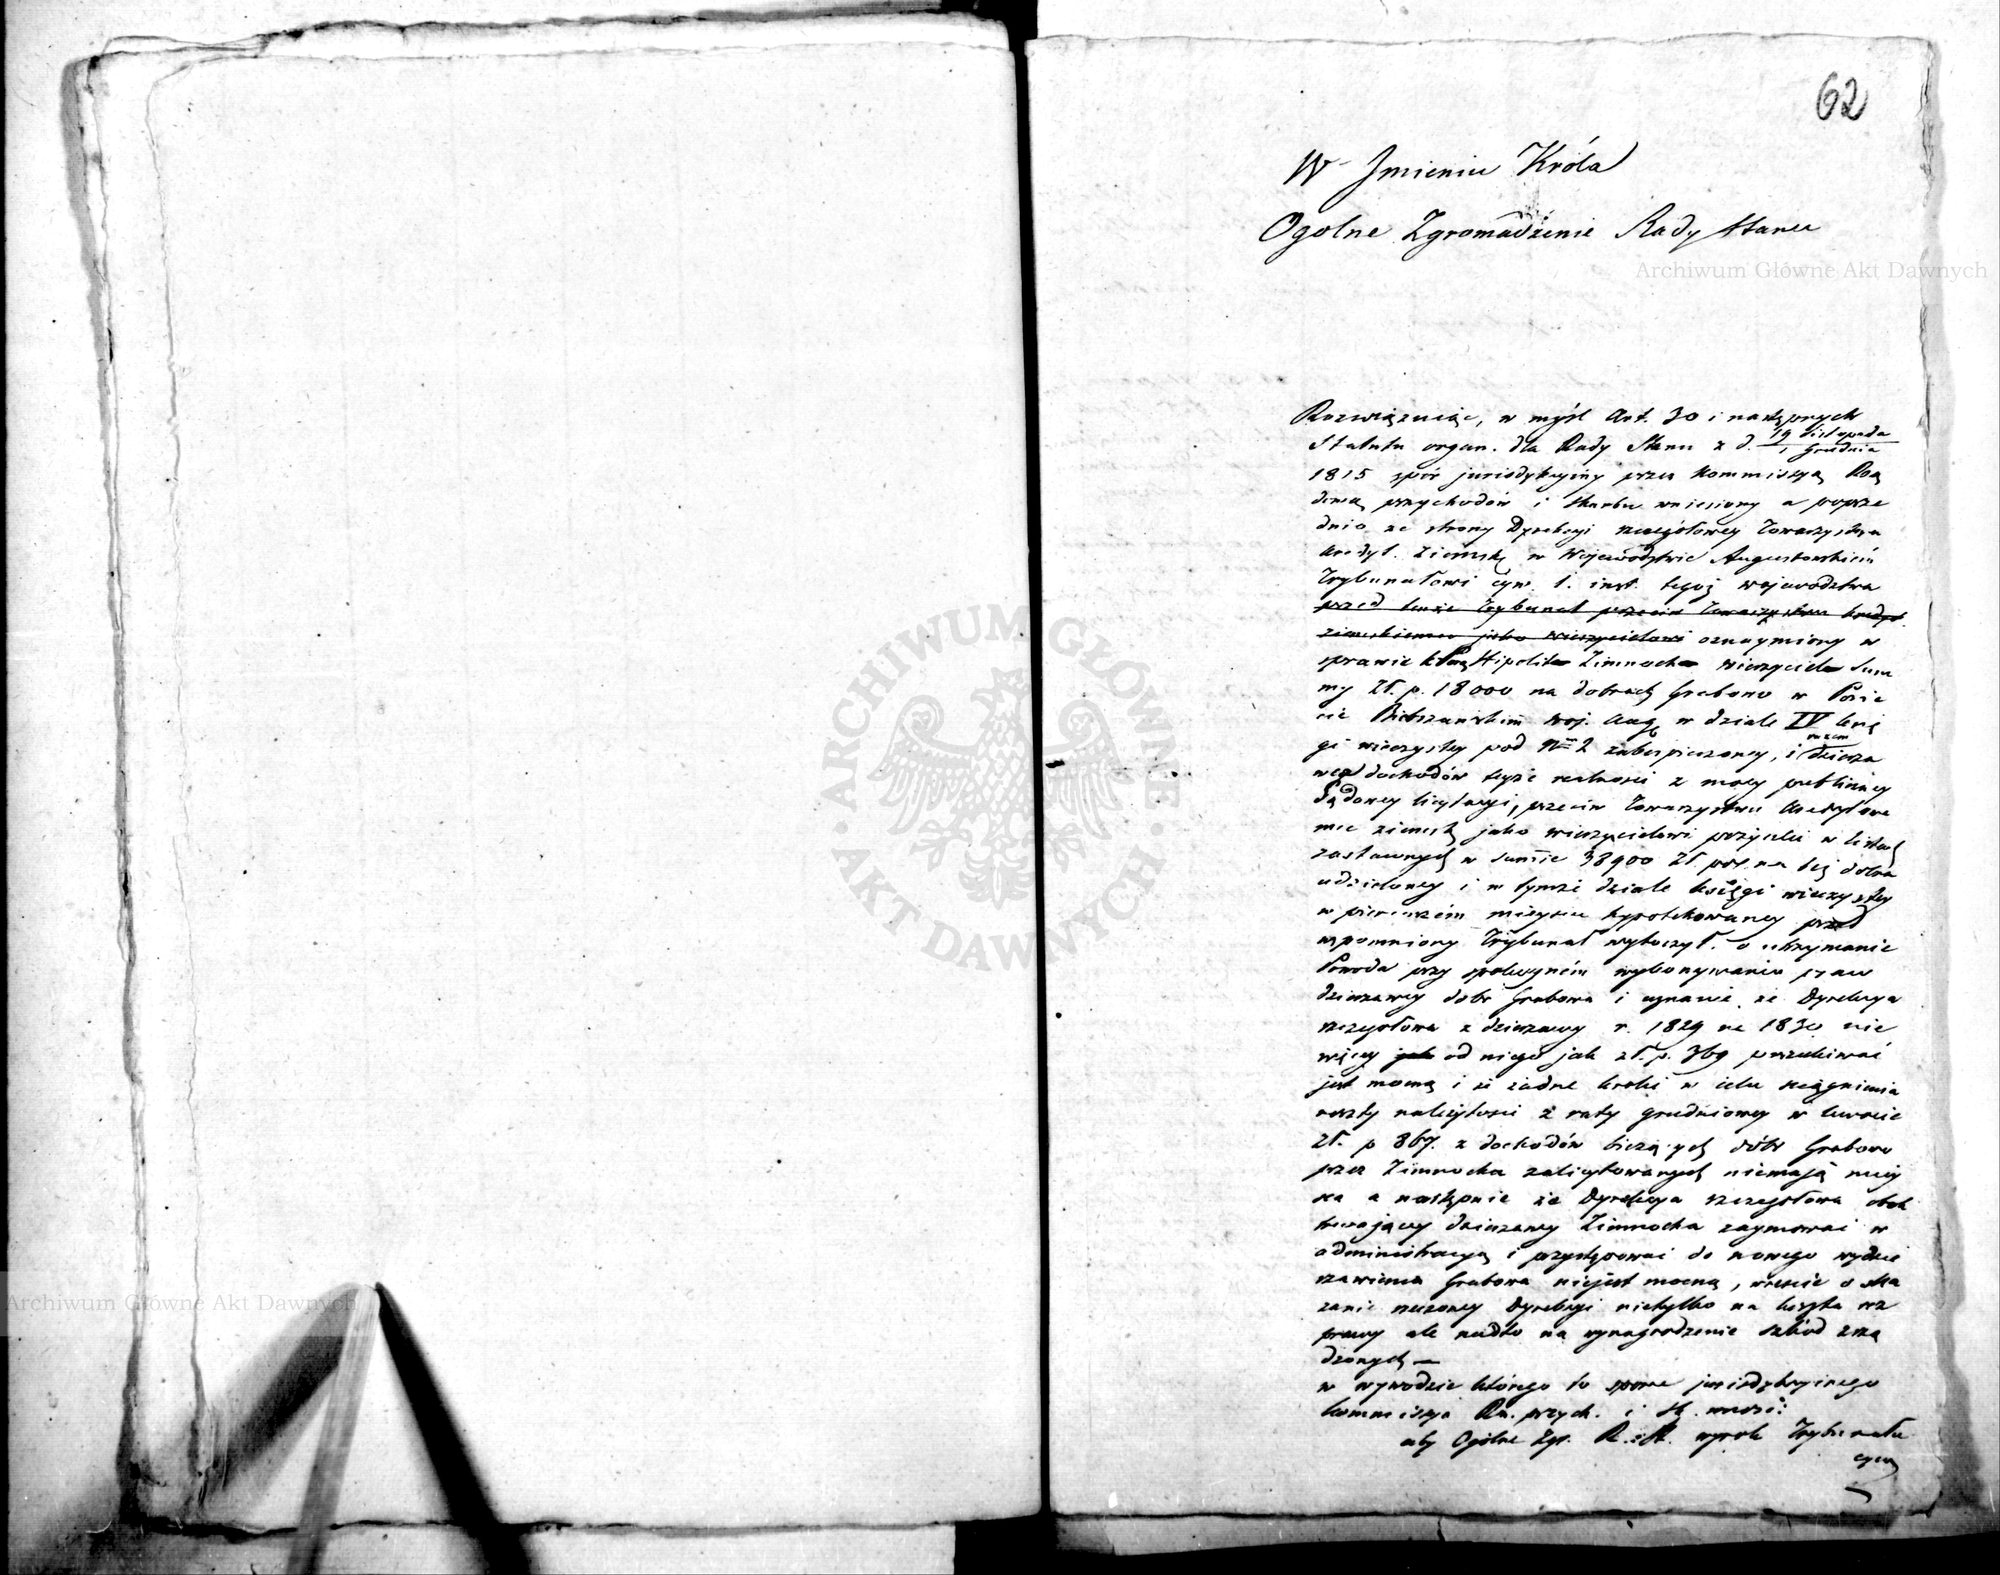 62
W Jmieniu Króla
Ogolne Zgromadzenie Rady Stanu
Archiwum Główne Akt Dawnych
Rozwiązuiąc, w myśl Art. 30 i następnych
Statutu organ. dla Rady Stanu z d. 19 Listopada / 1 Grudnia
1815 spór jurisdykcyiny przez Kommissyą Rzą
dową przychodów i Skarbu wniesiony a poprze
dnio ze strony Dyrekcyi szczegołowey Towarzystwa
kredyt. Ziemsk w Woiewództwie Augustowskiém
Trybunałowi cyw. 1. inst. tegoż województwa
przed tenże Trybunał przeciw Towarzystwu kredyt.
ziemskiemu jako wierzycielowi oznaymiony w
sprawie którą Hipolit Zimnoch wierzyciel Sum
my Zł. p. 18000 na dobrach Grabowo w Powie
cie Biebrzańskim woj. Aug. w dziale IV księ
gi wieczystey pod Nrm 2 zabespieczoney, i razem dzierża
wca dochodów teyże realności z mocy publiczney
Sądowey licytacyi, przeciw Towarzystwu kredytowe
mu ziemsk jako wierzycielowi pożyczki w listach
zastawnych w summie 38900 Zł. pol. na też dobra
udzieloney i w tymże dziale księgi wieczystey
w pierwszém mieyscu hypotekowaney przed
wspomniony Trybunał wytoczył. o utrzymanie
Powoda przy spokoyném wykonywaniu praw
dzierzawcy dobr Grabowa i uznanie że Dyrekcya
szczegołowa z dzierzawy r. 1829 na 1830 nie
więcey jak od niego jak zł. p. 369 poszukiwać
jest mocną i że żadne kroki w celu ściągnienia
reszty należytości z raty grudniowey w kwocie
zł. p 867. z dochodów bieżących dóbr Grabowo
przez Zimnocha zalicytowanych niemają miey
sca a następnie że Dyrekcya szczegołowa obok
trwającey dzierzawy Zimnocha zaymować w
administracyą i przystępować do nowego wydzier
zawienia Grabowa niejest mocną, wreście o ska
zanie rzeczoney Dyrekcyi nietylko na koszta ro
prawy ale nadto na wynagrodzenie szkód zrzą
dzonych —
w wywodzie którego to sporu jurisdykcyinego
kommissya Rz. przych. i Sk. wnosi:
aby Ogólne Zgr. R. St. wyrok Trybunału
cyw
ARCHIWUM GŁÓWNE AKT DAWNYCH
Archiwum Główne Akt Dawnych